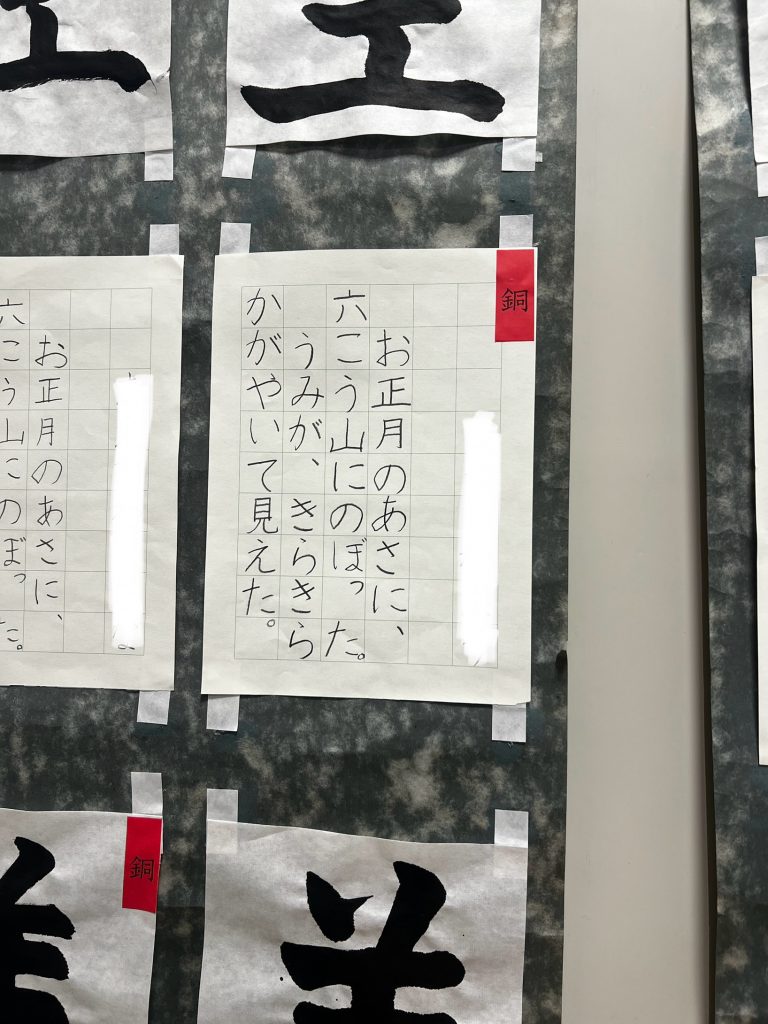 銅
お正月のあさに、
六こう山にのぼった。
うみが、きらきら
かがやいて見えた。
お正月のあさに、
六こう山にのぼった。
銅